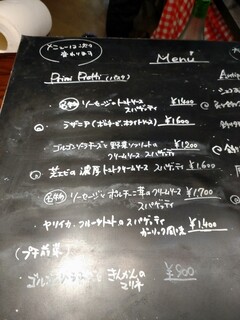 メニューは週
変わります
Menu
Primi Piatti (パスタ)
・名物 ソーセージのトマトソース ¥1400
スパゲッティ
・ラザニア (ボローゼ、ホワイトソース) ¥1600
ゴルゴンゾーラチーズと野菜ソフリットの ¥1200
クリームソース スパゲッティ
芝エビの濃厚トマトクリームソース スパゲッティ ¥1,600
名物 ソーセージとポルチーニ茸のクリームソース ¥1700
スパゲッティ
・ヤリイカ フルーツトマトのスパゲッティ ¥1,400
ガーリック風味
(プチ前菜)
きんかんの ¥800
マリネ